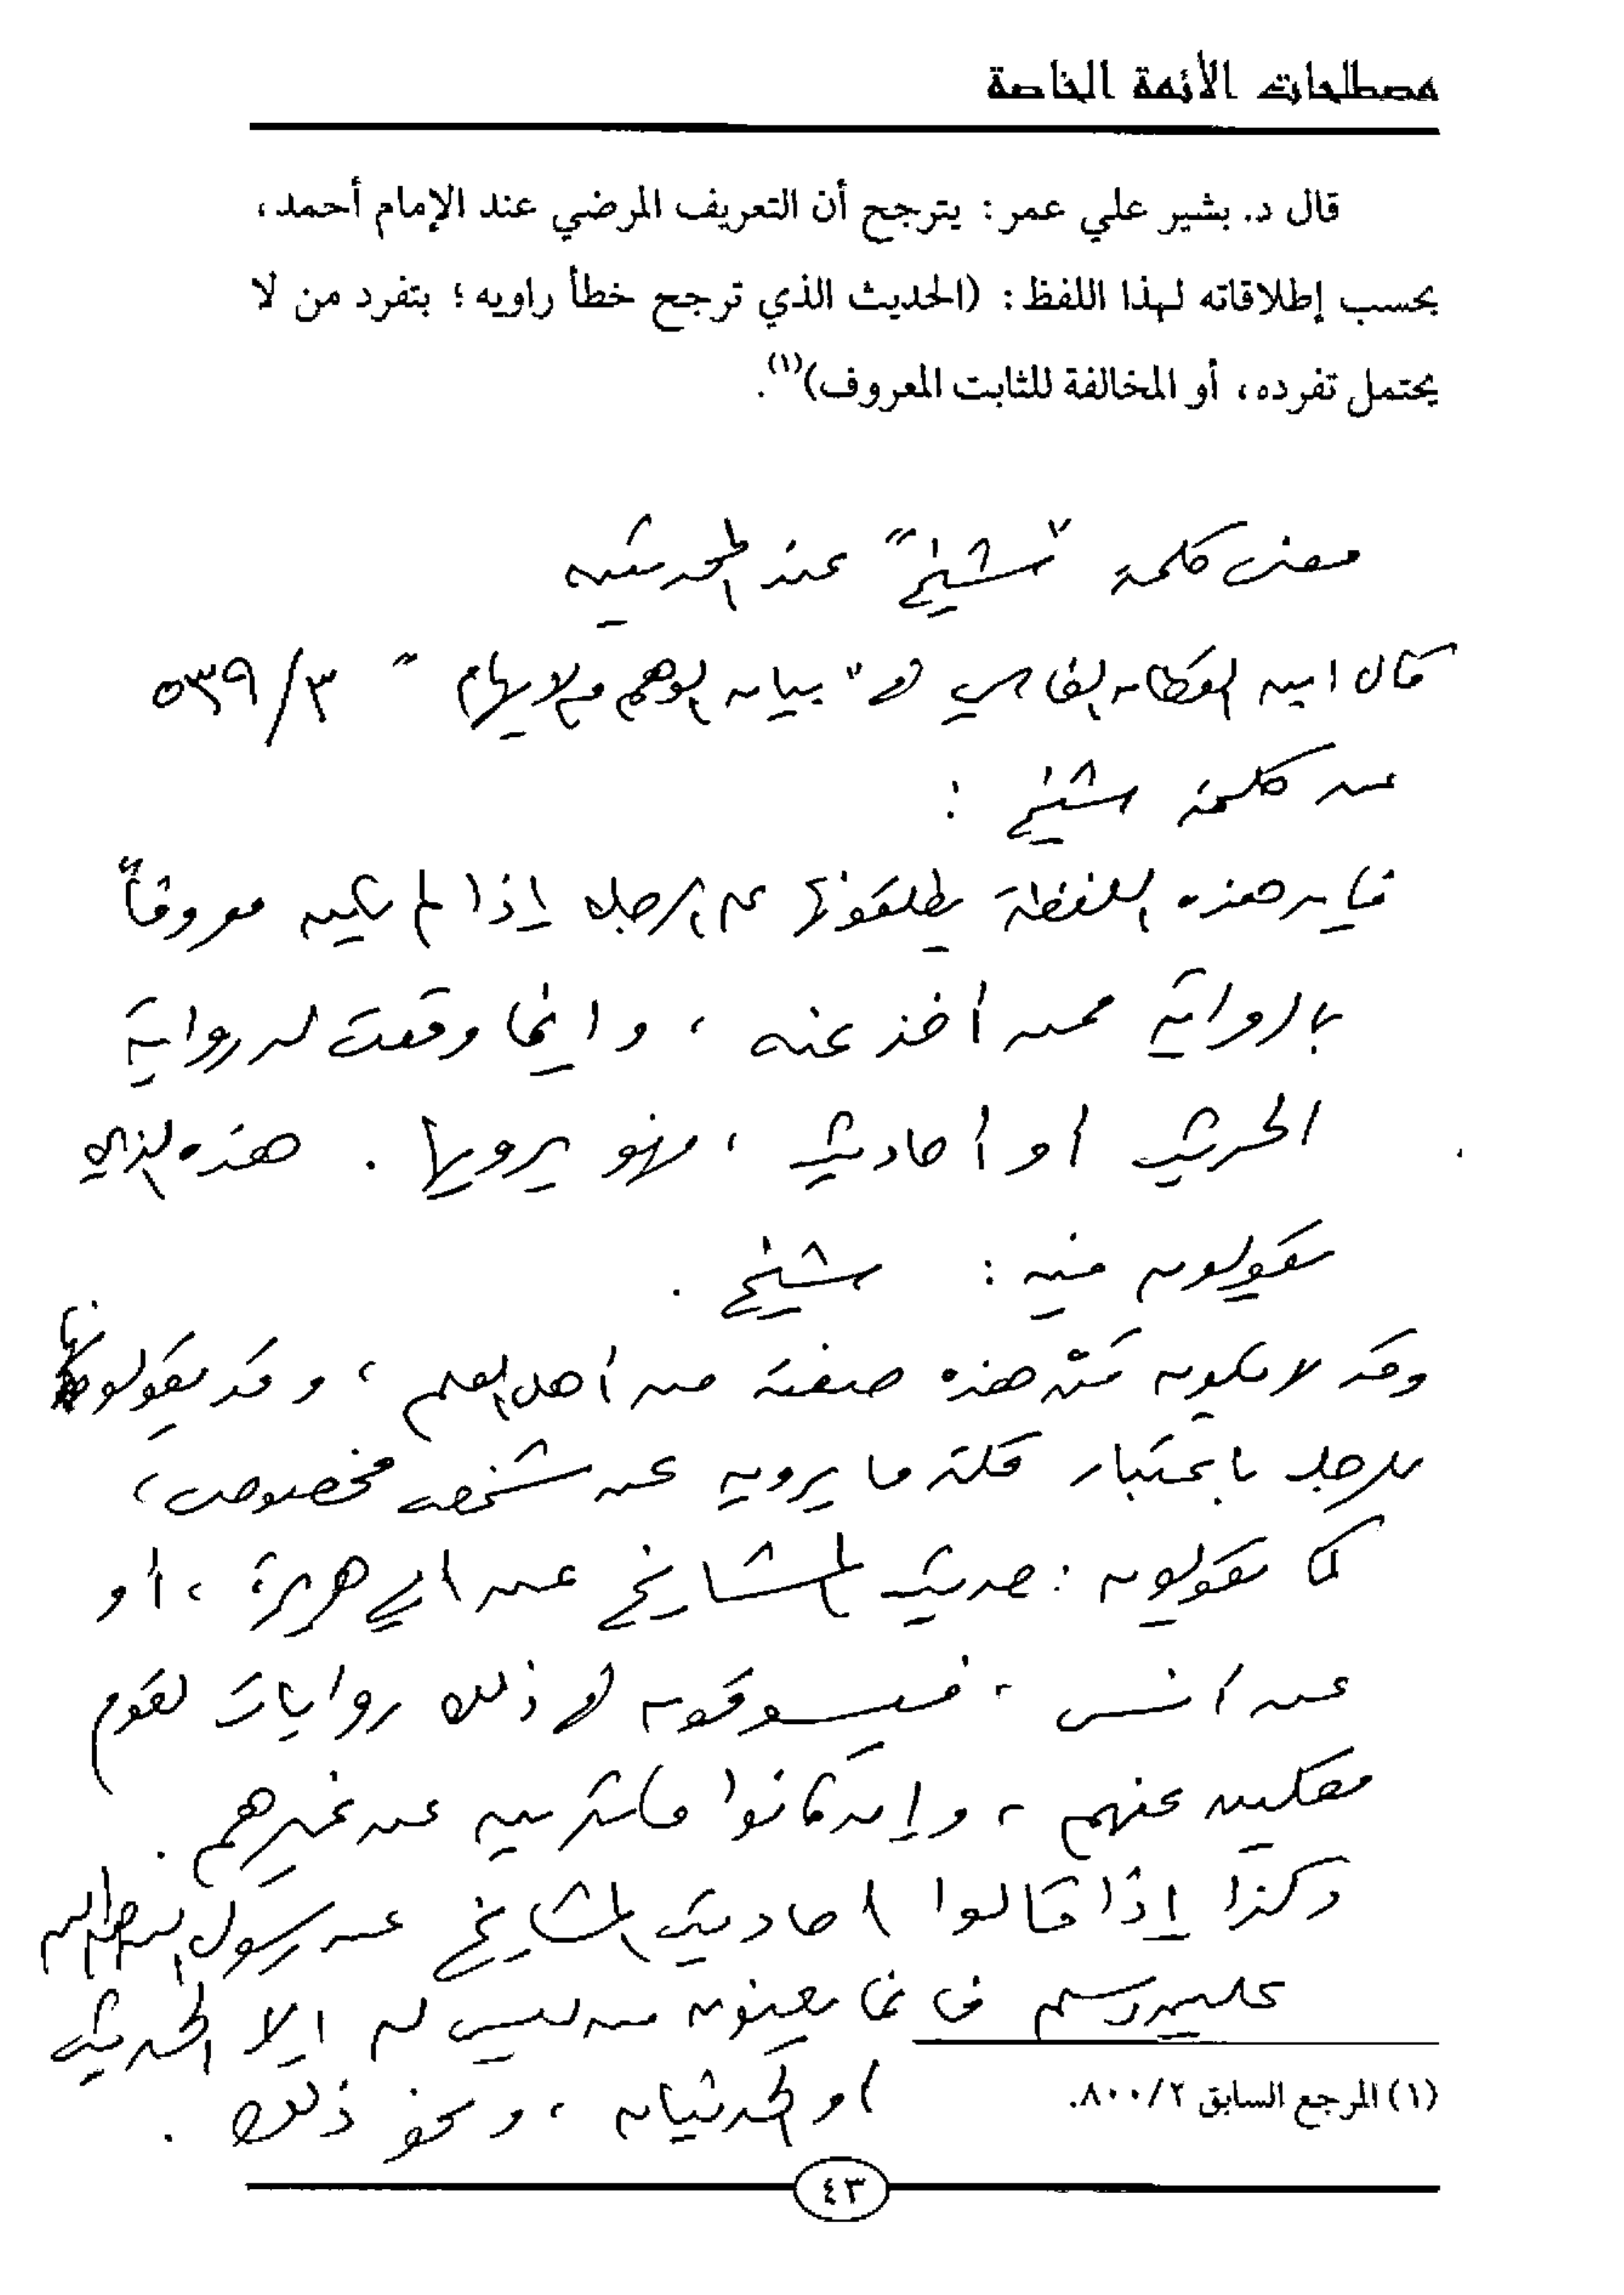 مصطلحات الأئمة الخاصة
قال د. بشير علي عمر: يترجح أن التعريف المرضي عند الإمام أحمد،
بحسب إطلاقاته لهذا اللفظ: (الحديث الذي ترجح خطأ راويه؛ بتفرد من لا
يحتمل تفرده، أو المخالفة للثابت المعروف)(١).
معنى كلمة "شيخ" عند المحدثين
قال ابن القطان الفاسي في "بيان الوهم والايهام" ٥٣٩/٣
عن كلمة شيخ :
فان هذه اللفظة يطلقونها على الرجل إذا لم يكن معروفاً
بالرواية ممن أخذ عنه ، وانما وقعت له رواية
الحديث او أحاديث ، فهو يرويها . هذه الذي
يقولون فيه : شيخ .
وقد لا يكون من هذه صفته من أهل العلم ، وقد يقولونها
للرجل باعتبار قلة ما يرويه عن شخص مخصوص ،
كما يقولون : حديث المشايخ عن ابي هريرة ، أو
عن انس ، فيسوقون في ذلك روايات لقوم
مقلين عنهم ، وإن كانوا مكثرين عن غيرهم .
وكذا إذا قالوا احاديث المشايخ عن رسول الله صلى الله
عليه وسلم فانما يعنون من ليس له إلا الحديث
او الحديثان ، ونحو ذلك .
(١) المرجع السابق ٨٠٠/٢.
٤٣